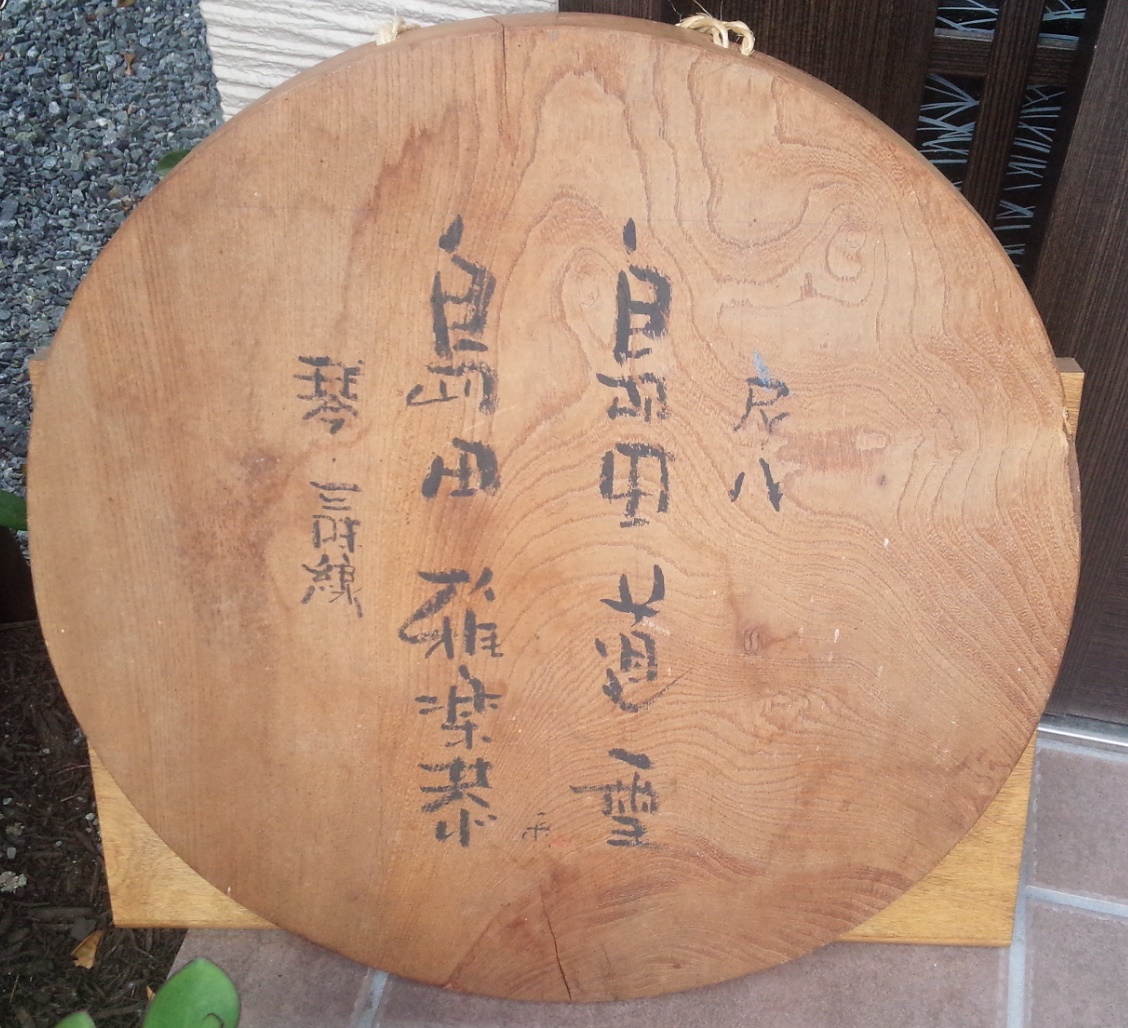 尺八
島田道雪
島田雅楽恭
琴・三味線